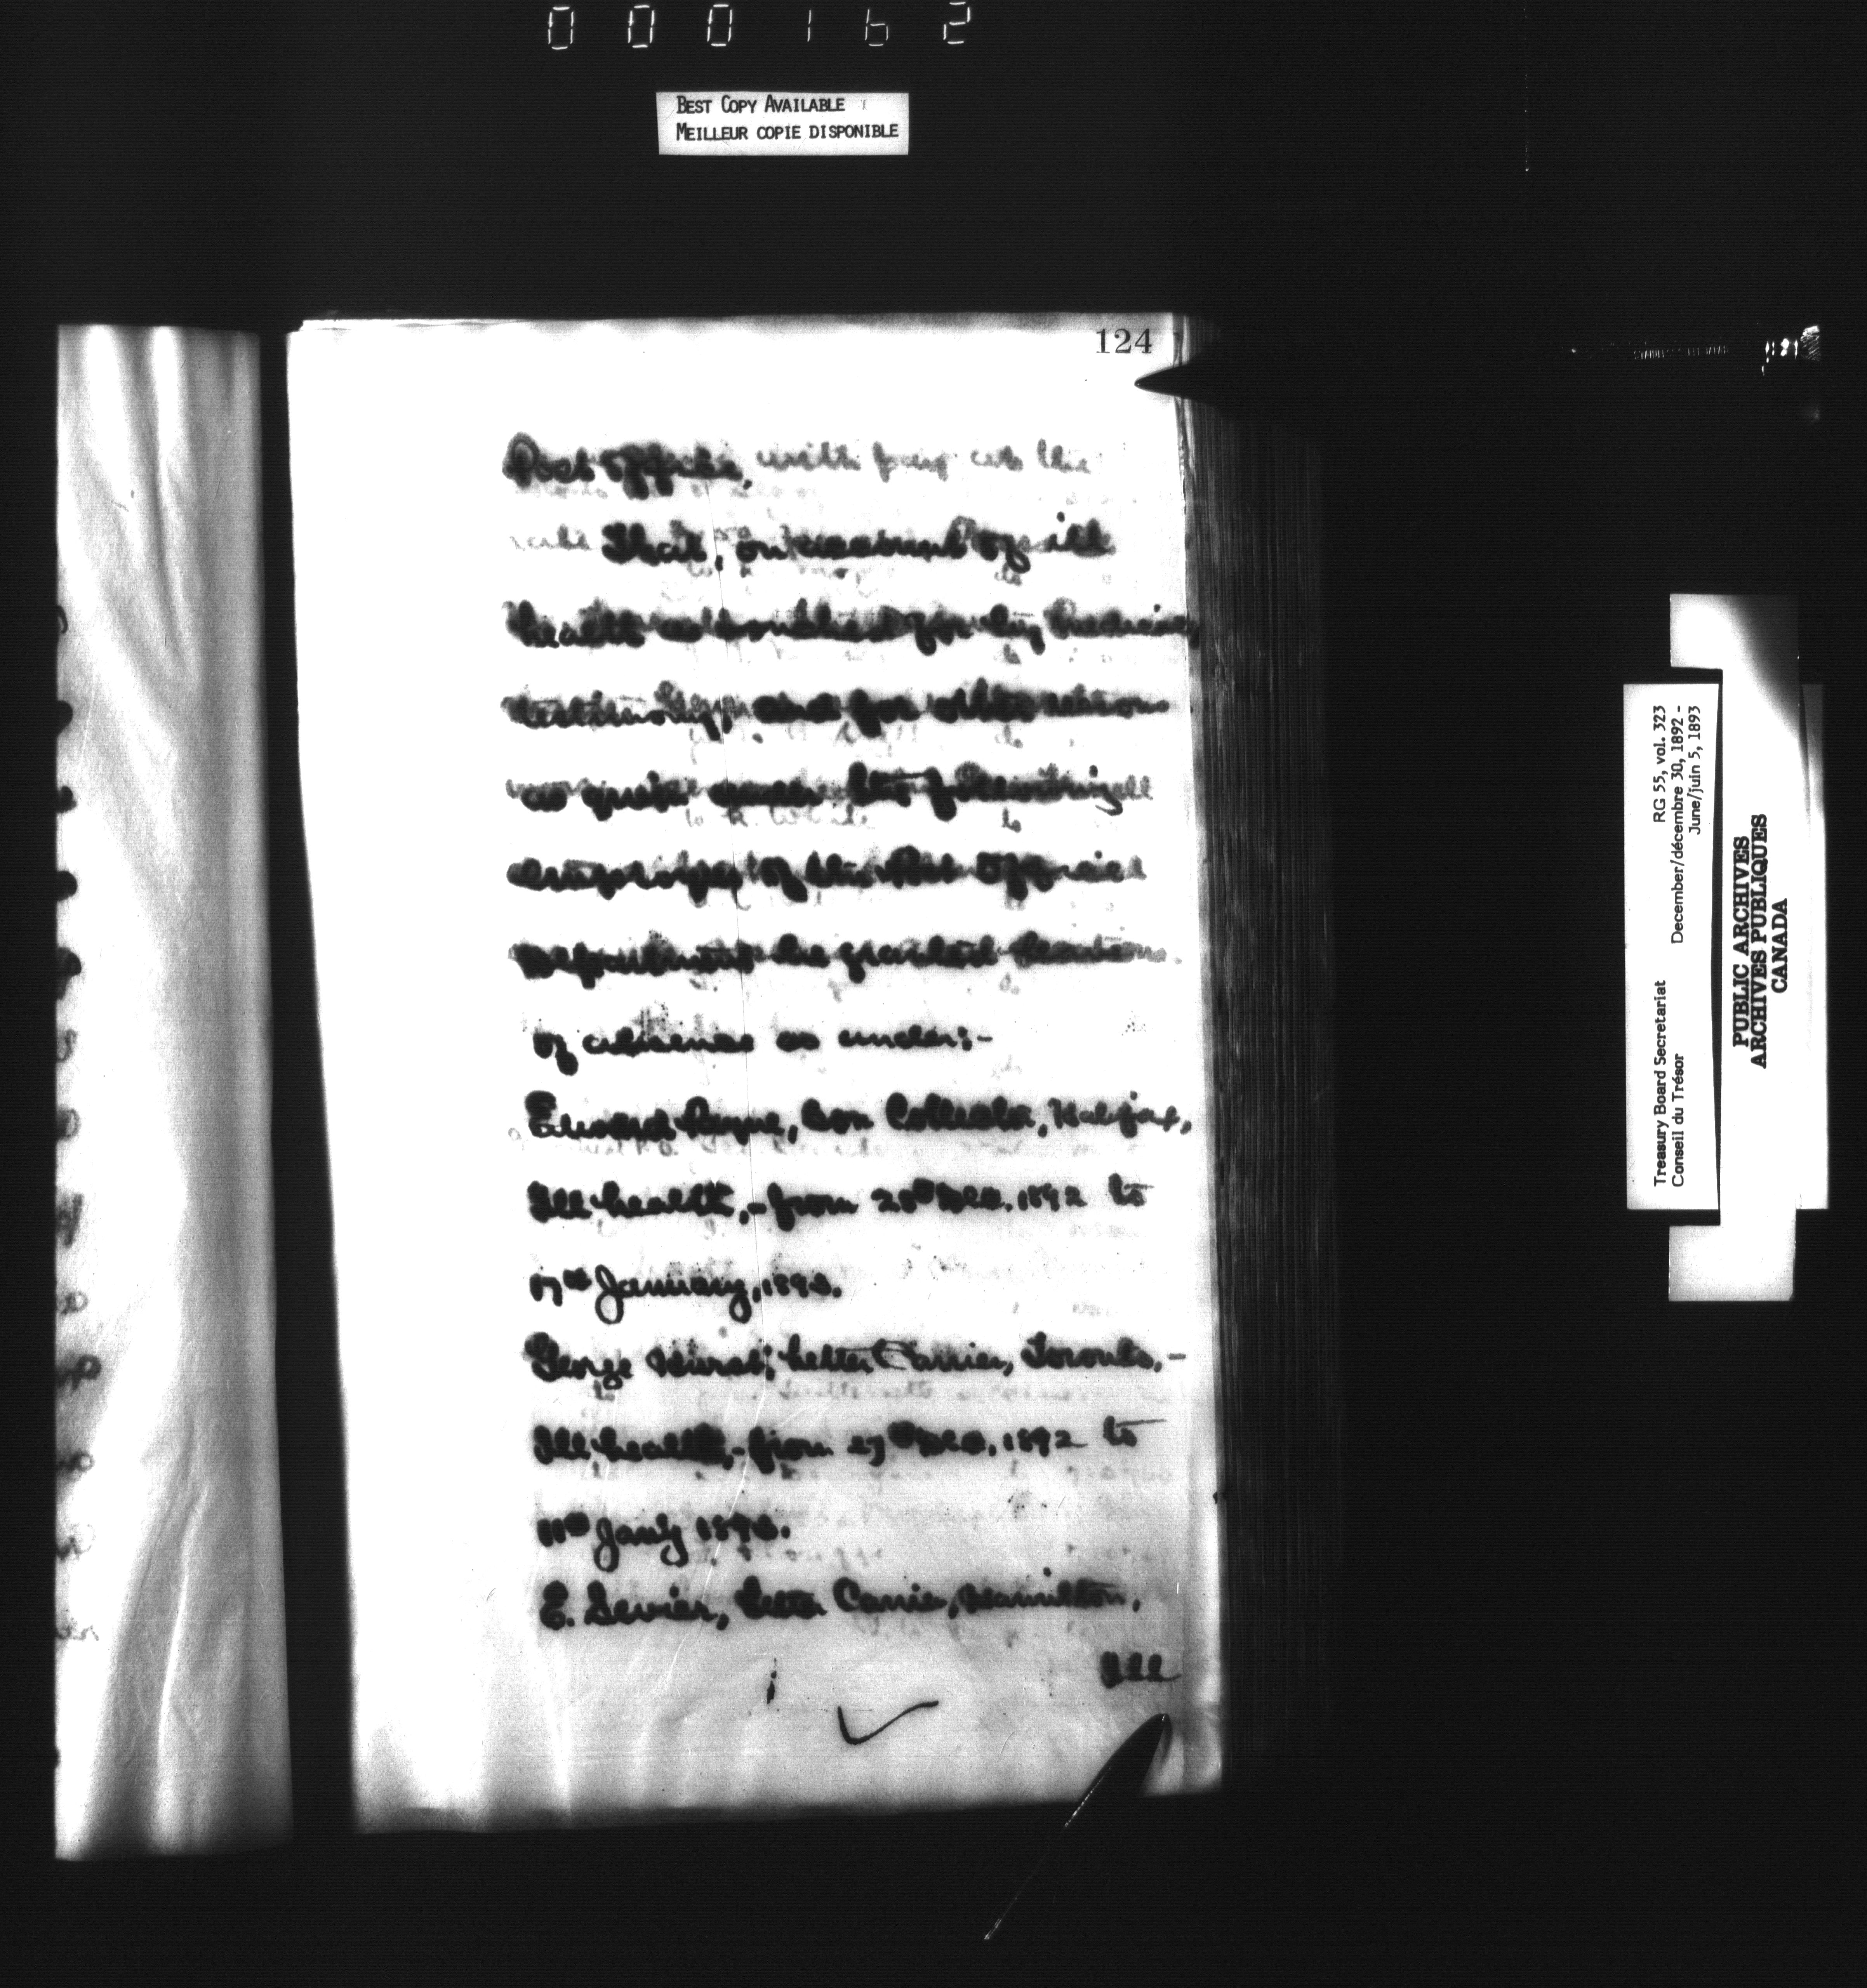 000162
BEST COPY AVAILABLE
MEILLEUR COPIE DISPONIBLE
124
Post Office,
That, on account of ill
health as vouched for by medical
testimony, and for other reasons
as given under the following
employes of the Post Office
Department be granted leave
of absence as under:-
Edward Payne, Box Collector, Halifax,
Ill health,- from 28th Dec. 1892 to
17th January, 1893.
George Hurst, Letter Carrier, Toronto,-
Ill health,- from 27th Dec. 1892 to
11th Jan'y 1893.
E. Sevier, Letter Carrier, Hamilton,
Ill
Treasury Board Secretariat RG 55, vol. 323
Conseil du Trésor December/décembre 30, 1892 -
June/juin 5, 1893
PUBLIC ARCHIVES
ARCHIVES PUBLIQUES
CANADA